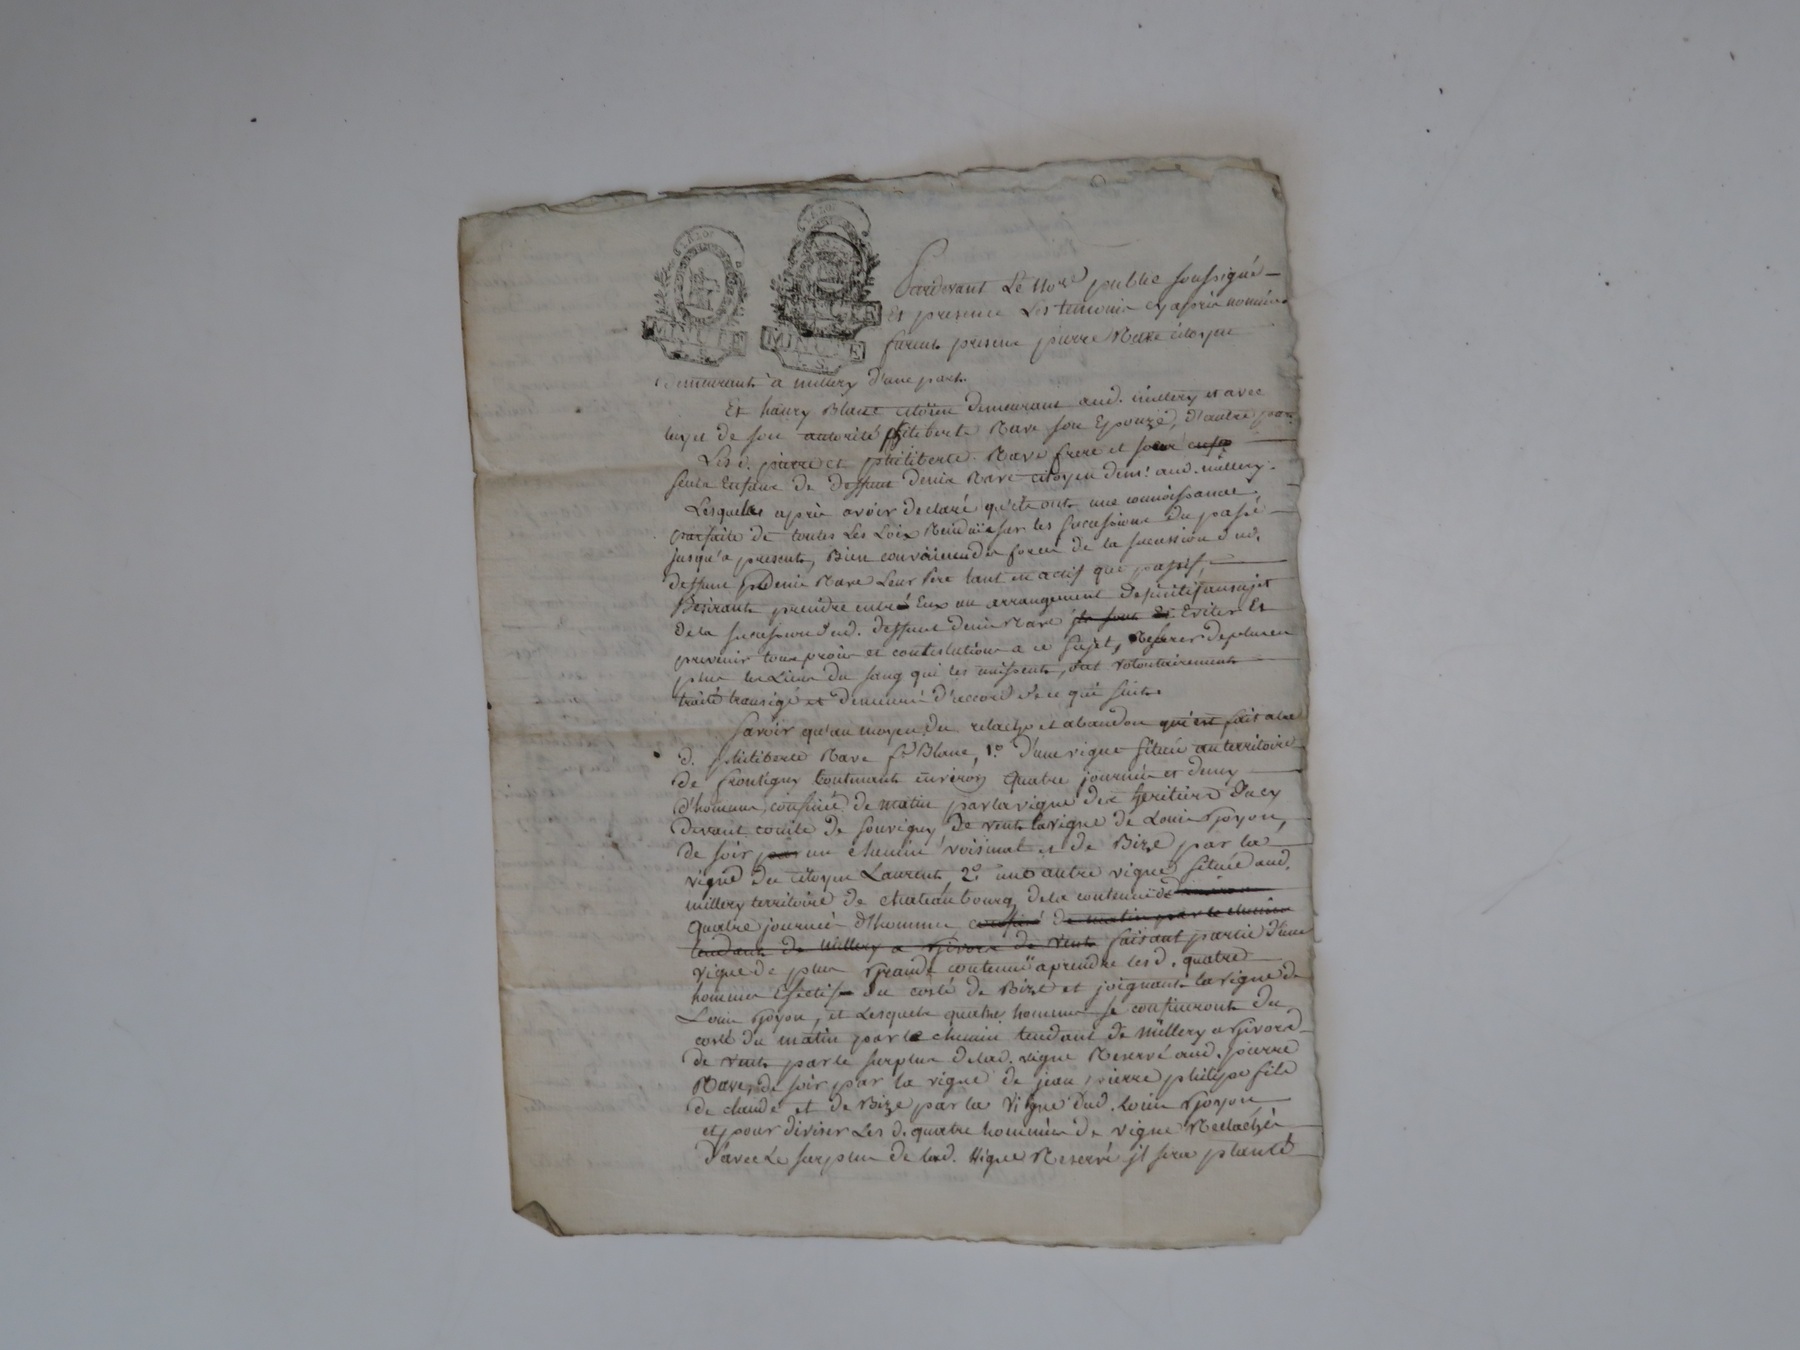 LA LOI
MINUTE
LA LOI
MINUTE
Pardevant Le Nore public soussigné
Et presence Les temoins cy après nommés
furent presens pierre Rave citoyen
demeurant a millery d'une part.
Et hanry Blanc citoïen demeurant aud. millery et avec
luy et de son autorité philiberte Rave son Epouze, d'autre part.
Lesd. pierre et philiberte Rave frere et soeur
seuls Enfans de deffunt denis Rave citoyen demt aud. millery.
Lesquelles après avoir declaré qu'ils ont une connoissance
parfaite de toutes Les Loix Renduës sur les sucessions du passé
jusqu'a present, Bien convaincus des forces de la sucession dud.
deffunt denis Rave Leur Pere tant en actif que passif,
Desirants prendre entre Eux un arrangement definitif au sujet
de la sucession dud. deffunt denis Rave Eviter Et
prevenir tous procès et contestutions a ce sujet, Resserer de plus en
plus les Liens du sang qui les unissent, ont volontairement
traité transigé et demeuré d'accord de ce qui suit.
Savoir qu'au moyen du relache et abandon qui est fait a la
d. philiberte Rave fe Blanc, 1.º d'une vigne située au territoire
de frontigny Contenant environ quatre journées et demy
d'hommes, confinée de matin par la vigne des heritiers du cy
devant comte de souvigny de vent la vigne de Louis Goyon,
de soir par un chemin voisinal et de Bize par la
vigne du citoyen Laurent 2º une autre vigne située aud.
millery territoire de chateaubourg de la contenue de
quatre journées d'hommes confiné de matin par le chemin
tendant de millery a Givors de vent faisant partie d'une
vigne de plus Grande contenuë a prendre lesd. quatre
hommes du costé de Bize et joignant la vigne de
Louis Goyon, et Lesquels quatre hommes se confineront du
costé du matin par le chemin tendant de millery a Givors
de vent par le surplus de lad. vigne Reservé aud. pierre
Rave, de soir par la vigne de jean pierre philipe fils
de claude et de Bize par la vigne dud. Louis Goyon
et pour diviser Les d. quatre hommées de vigne Relachés
d'avec Le surplus de lad. vigne Reservé il sera planté